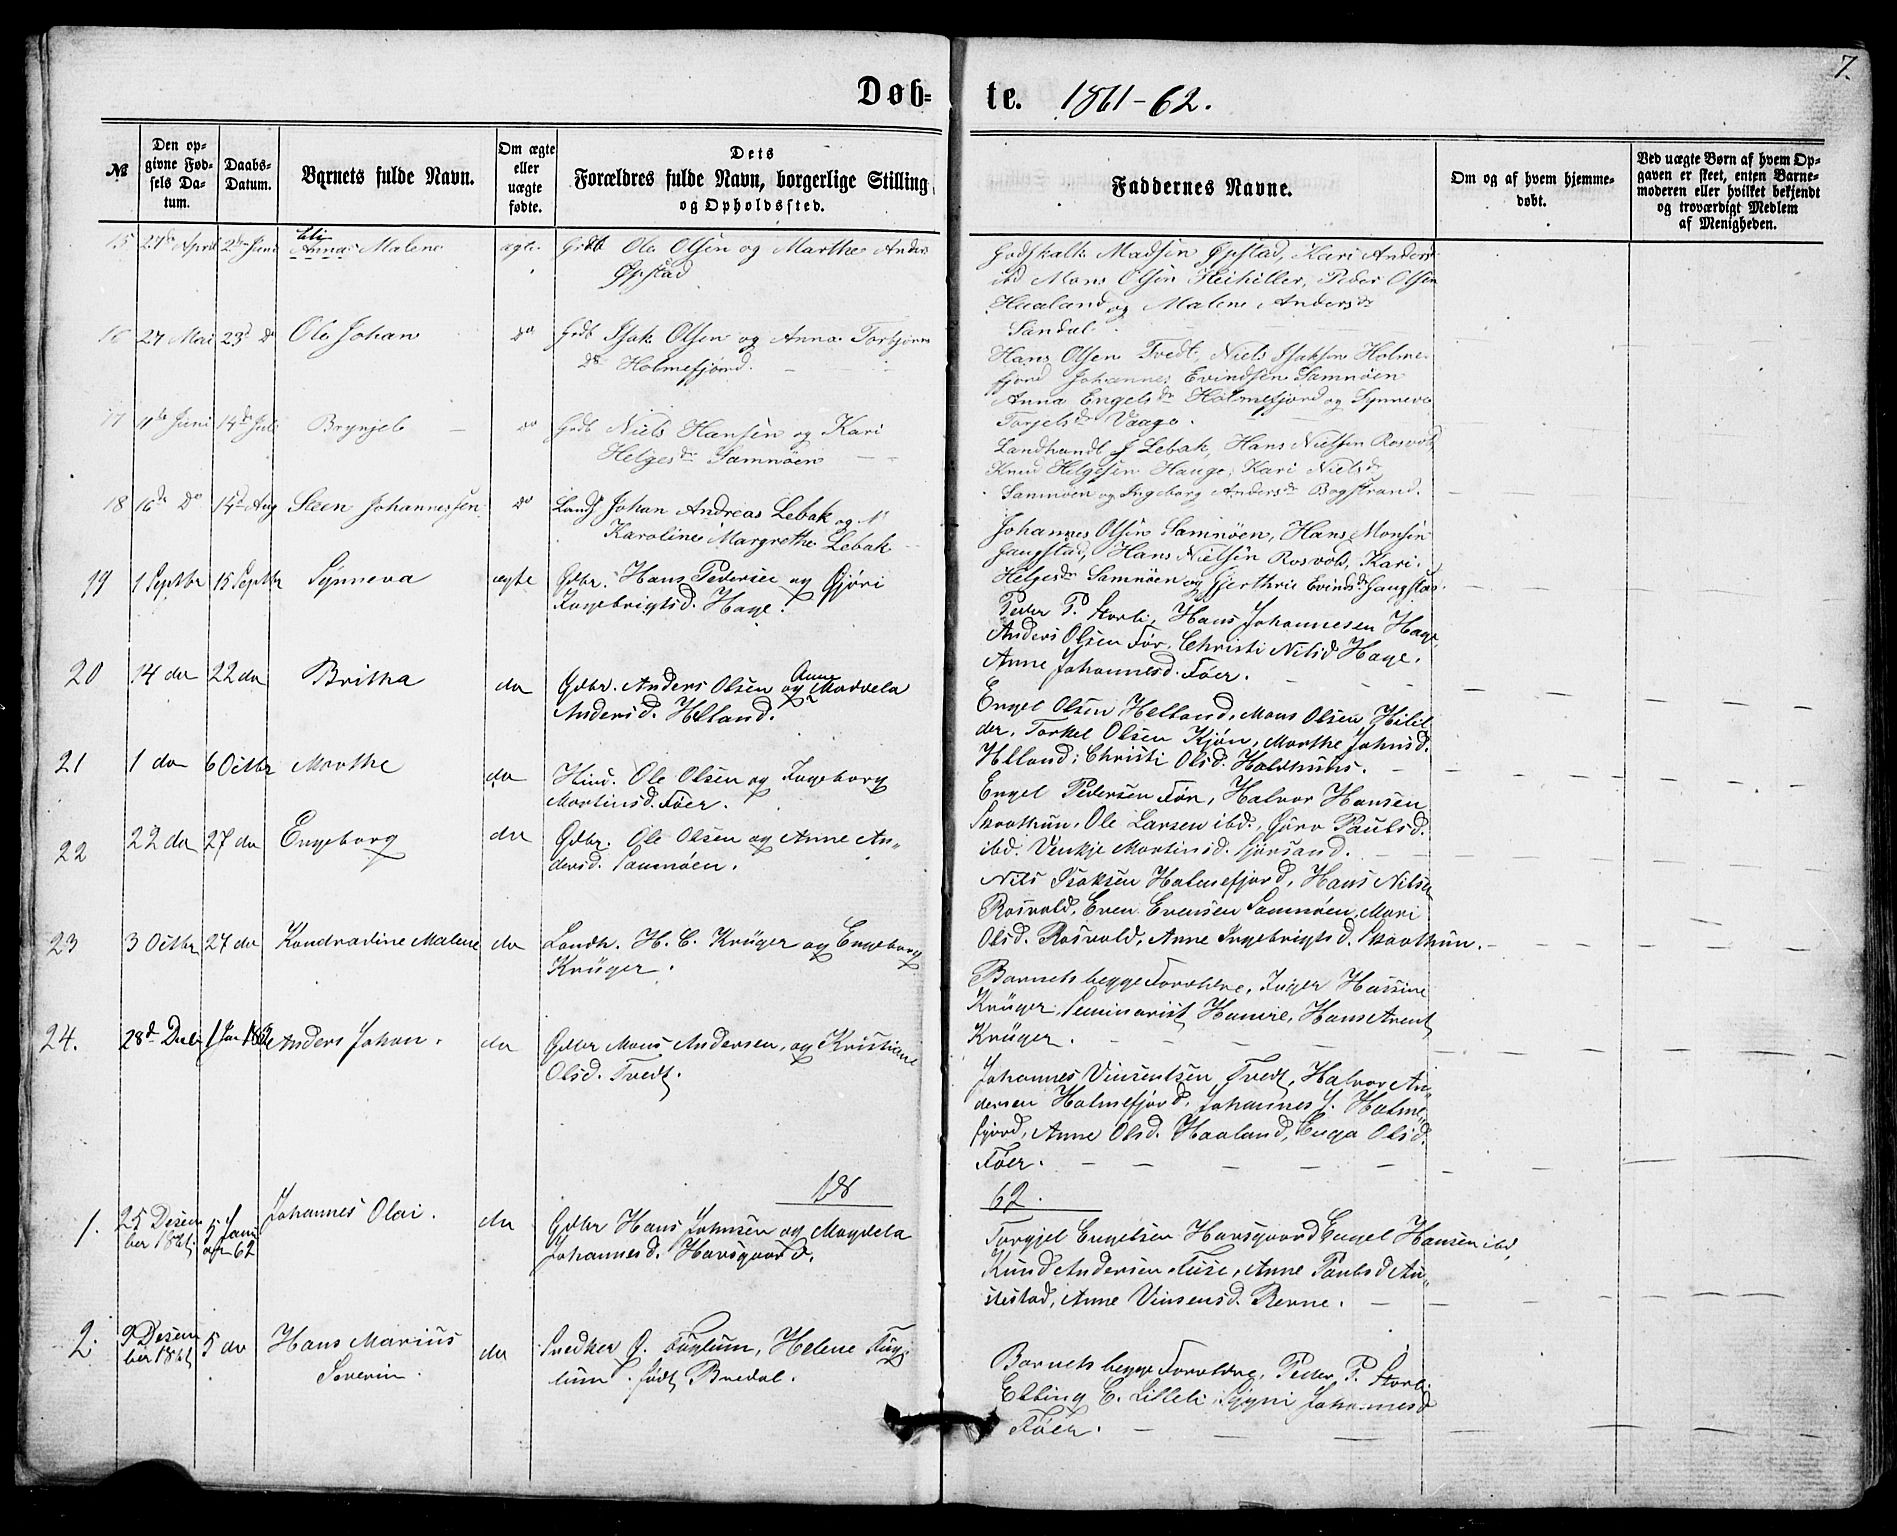 7.
Døb- te. 1861-62.
№
Den op-
givne Fød-
sels Da-
tum.
Daabs-
Datum.
Barnets fulde Navn.
Om ægte
eller
uægte
fødte.
Dets
Forældres fulde Navn, borgerlige Stilling
og Opholdssted.
Faddernes Navne.
Om og af hvem hjemme-
døbt.
Ved uægte Børn af hvem Op-
gaven er skeet, enten Barne-
moderen eller hvilket bekjendt
og troværdigt Medlem
af Menigheden.
15 27de April 2den Juni Anna Malene ægte Grdb Ole Olsen og Marthe Anders
Øpstad
Godskalk Madsen Øpstad, Kari Anders
ibd Mons Olsen Heihiller, Peder Olsen
Haaland og Malene Andersdr
Sandal.
16 27 Mai 23d Do Ole Johan Do Grdb Isak Olsen og Anna Torbjørns
Dr Holmefjord.
Hans Olsen Tvedt, Niels Isaksen Holme-
fjord Johannes Evindsen Samnøen
Anna Engelsdr Holmefjord og Synneva
Torgelsdr Vaage.
17 Juni 14de Juli Brynjel Do Grdb Niels Hansen og Kari
Helgesdr Samnøen
Landhandl J Lebak, Hans Nielsen Rosvold,
Knud Helgesen Hauge, Kari Nielsdr
Samnøen og Ingeborg Andersdr Bogstrand.
18 16de Do 14d Aug Steen Johannessen Do Landh Johan Andreas Lebak og
Karoline Margrethe Lebak
Johannes Olsen Samnøen, Hans Monsen
Gaugstad, Hans Nielsen Rosvold, Kari
Helgesdr Samnøen og Gjerthrue Evindsdr Gaugstad.
19 1 Septbr 15 Septbr Synneva ægte Gdbr. Hans Pedersen og Gjøri
Ingebrigtsd. Hage.
Peder P. Storli, Hans Johannesen Hage,
Anders Olsen Før, Christi Nilsd Hage.
Anne Johannesd. Føer.
20 14 do 22 do Britha do Gdbr. Anders Olsen og Anne Madvela
Andersd. Helland.
Engel Olsen Helland, Mons Olsen Hilil
der, Torkel Olsen Kjøn, Marthe Johnsd.
Helland; Christi Olsd. Holdhuus.
21 1 do 6 Octbr Marthe do Hmd. Ole Olsen og Ingeborg
Martinsd. Føer.
Engel Pedersen Før, Halvor Hansen
Skaathun, Ole Larsen ibd., Gøro Paulsd.
ibd. Venkje Martinsd. Sjørsand.
22 22 do 27 do Engeborg do Gdbr. Ole Olsen og Anne An-
dersd. Samnøen.
Nils Isaksen Holmefjord, Hans Nilsen
Rosvold, Even Evensen Samnøen, Mari
Olsd. Rosvold, Anne Ingebrigtsd. Skaathun.
23 3 Octbr 27 do Kondradine Malene do Landh. H. C. Krüger og Engeborg
Krüger.
Barnets begge Forældre, Inger Hassine
Krüger, Seminarist Hamre, Hans Arent
Krüger.
24. 28d Decb 1 Jan 1862 Anders Johan. do Gdbr Mons Andersen, og Kristiane
Olsd. Tvedt.
Johannes Vinsentsen Tvedt, Halvor An-
dersen Holmefjord, Johannes J. Holme-
fjord, Anne Olsd. Haaland, Enga Olsd.
Føer.
18 62.
1. 25 Desem
ber 1861 5 Janu
ar 62 Johannes Olai. do Gdbr Hans Johnsen og Magdela
Johannesd. Havsgaard.
Torgjel Engelsen Havsgaard Engel Hansen ibd,
Knud Andersen Fuse, Anne Paulsd An-
stestad, Anne Vinsensd. Berne.
2. 9 Desem
ber 1861 5 do Hans Marius
Severin. do Snedker O. Fuglum, Helene Fug-
lum født Bredal.
Barnets begge Forældre, Peder P. Storli
Ebbing E. Lilleli, Sygni Johannesd
Føer.